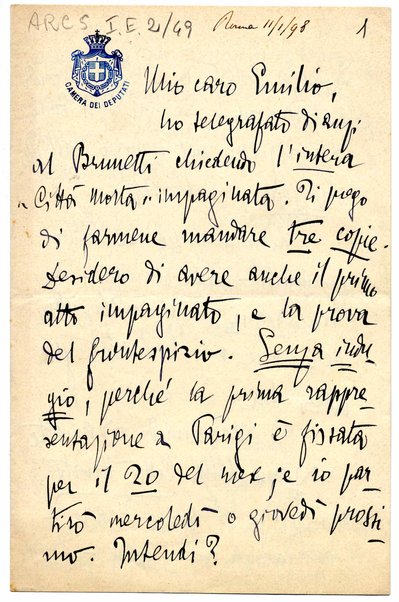 ARCS. I.E. 2/49 Roma 11/1/98 1
CAMERA DEI DEPUTATI
Mio caro Emilio,
ho telegrafato dianzi
al Brunetti chiedendo l'intera
"Città morta" impaginata. Ti prego
di farmene mandare tre copie.
Desidero di avere anche il primo
atto impaginato, e la prova
del frontespizio. Senza indu-
gio, perché la prima rappre-
sentazione a Parigi è fissata
per il 20 del mese e io par-
tirò mercoledì o giovedì prossi-
mo. Intendi?